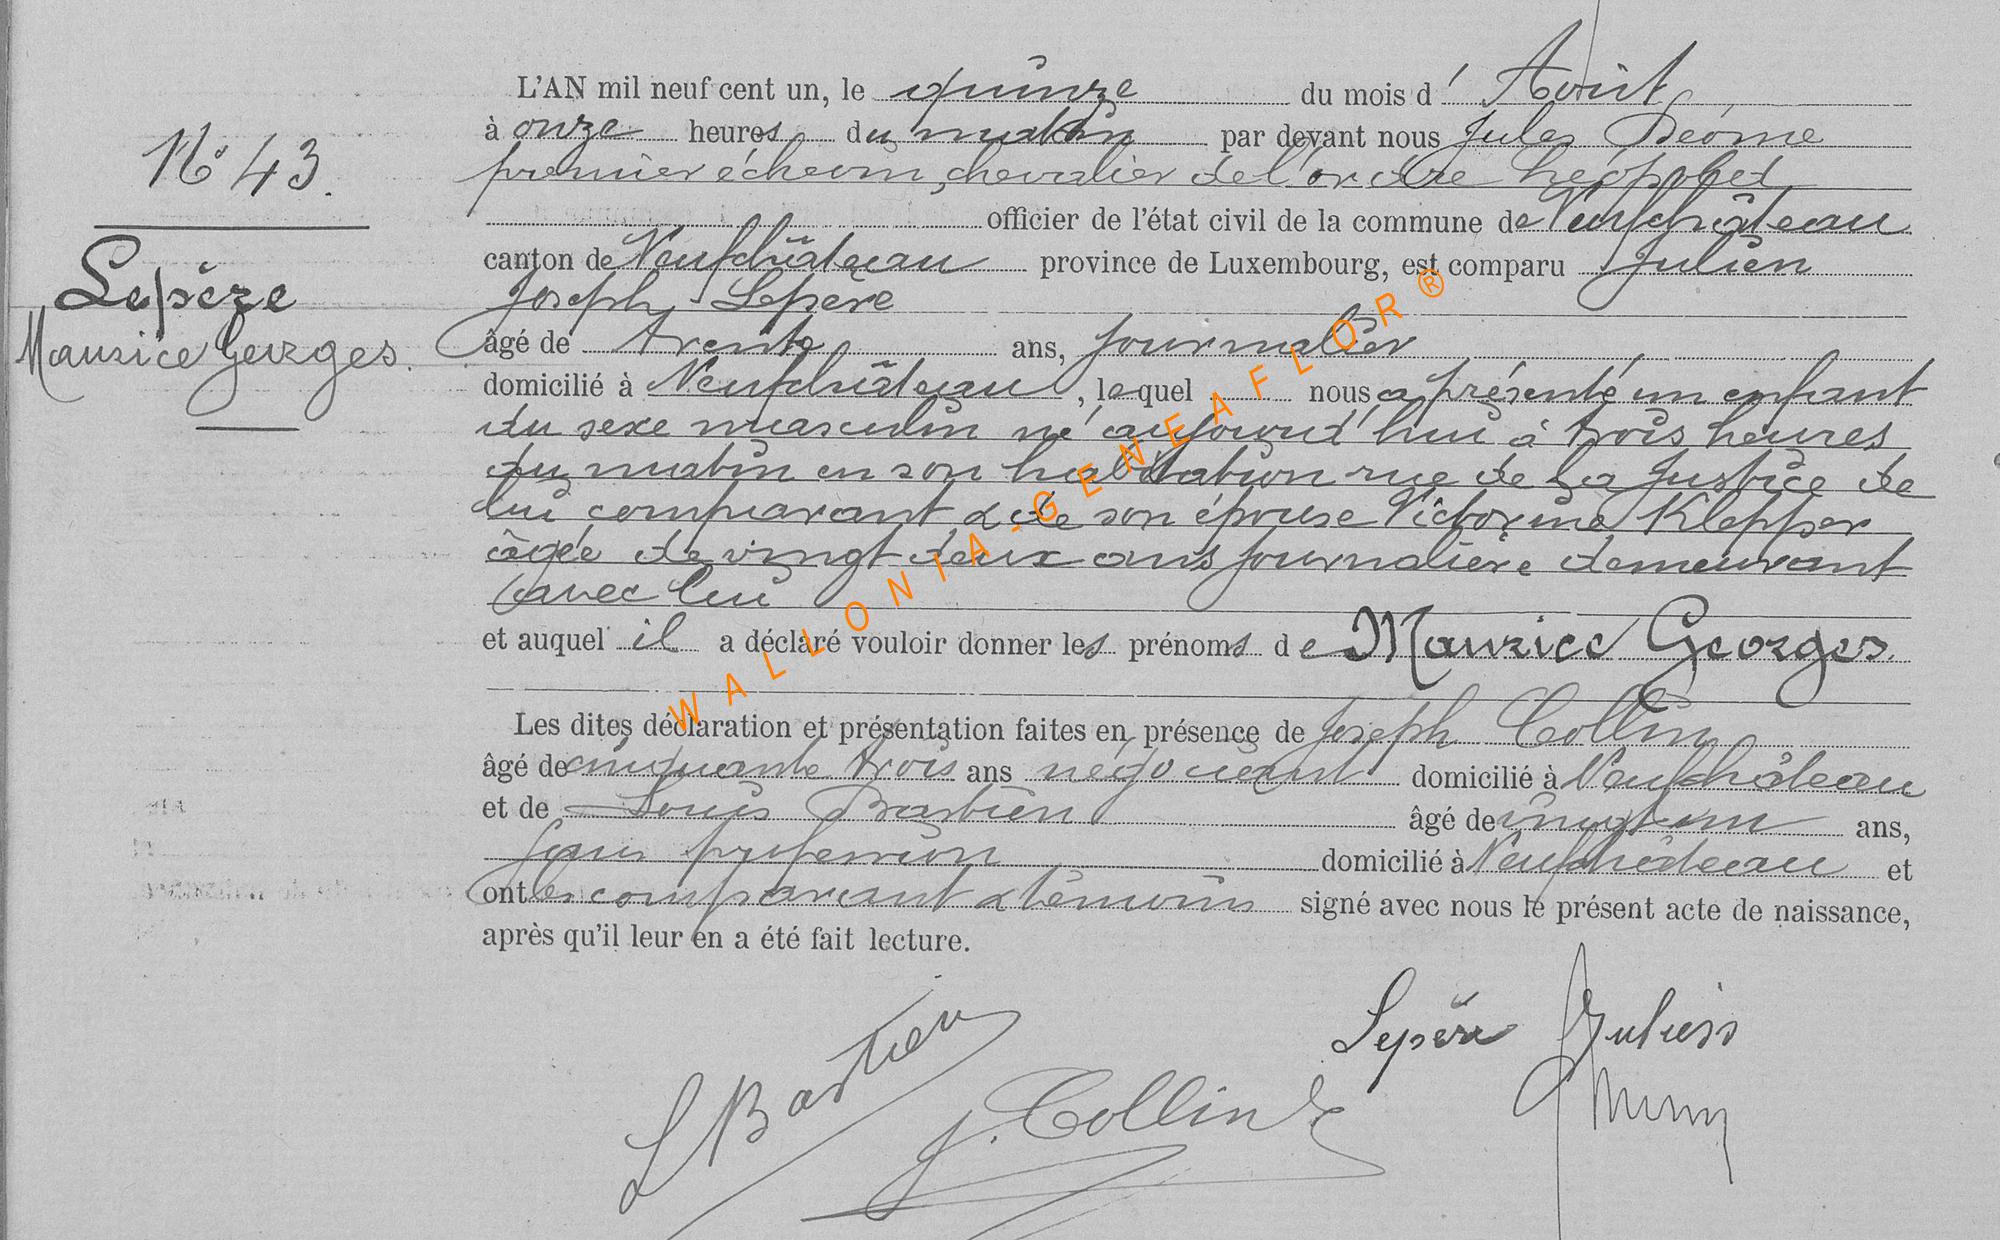 N° 43.
Lepère
Maurice Georges.
L'AN mil neuf cent un, le quinze du mois d' Août
à onze heures du matin par devant nous Jules Déome
premier échevin, chevalier de l'ordre Léopold
officier de l'état civil de la commune de Neufchâteau
canton de Neufchâteau province de Luxembourg, est comparu Julien
Joseph Lepère
âgé de trente ans, journalier
domicilié à Neufchâteau, lequel nous a présenté un enfant
du sexe masculin né aujourd'hui à trois heures
du matin en son habitation rue de la Justice de
lui comparant & de son épouse Victorine Klepper
âgée de vingt deux ans journalière demeurant
avec lui
et auquel il a déclaré vouloir donner les prénoms de Maurice Georges
Les dites déclaration et présentation faites en présence de Joseph Collin
âgé de cinquante trois ans négociant domicilié à Neufchâteau
et de Louis Bastien âgé de vingt un ans,
sans profession domicilié à Neufchâteau et
ont les comparant & témoins signé avec nous le présent acte de naissance,
après qu'il leur en a été fait lecture.
Lepère Julien
L Bastien
J. Collin
WALLONIA-GENEAFLOR®